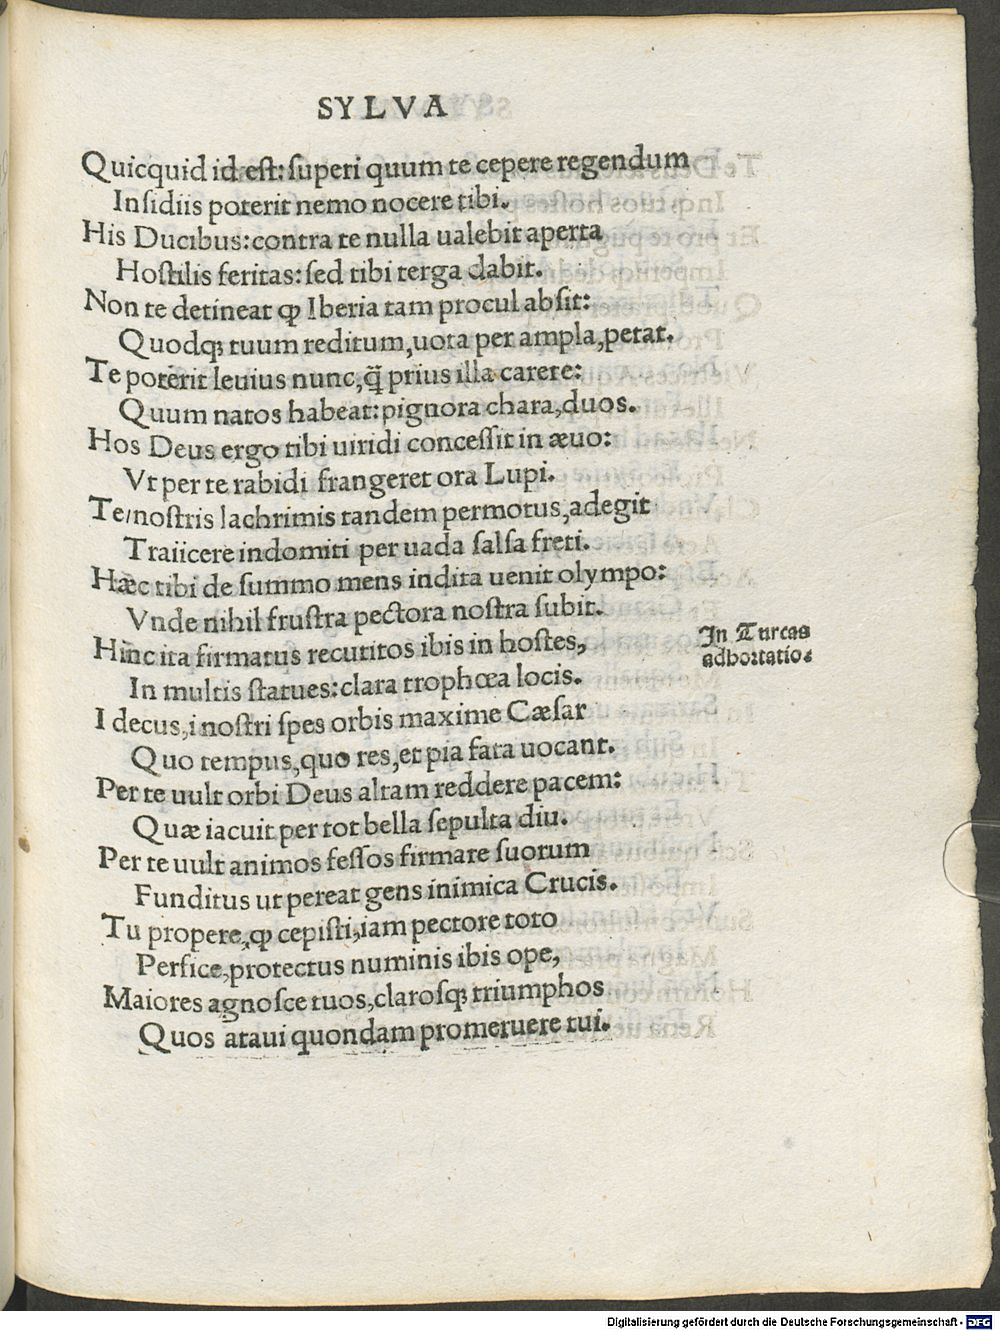 SYLVA
Quicquid id est: superi quum te cepere regendum
Insidiis poterit nemo nocere tibi.
His Ducibus: contra te nulla ualebit aperta
Hostilis feritas: sed tibi terga dabit.
Non te detineat ꝙ Iberia tam procul absit:
Quodqꝫ tuum reditum, uota per ampla, petat.
Te poterit leuius nunc, q̃ prius illa carere:
Quum natos habeat: pignora chara, duos.
Hos Deus ergo tibi uiridi concessit in æuo:
Vt per te rabidi frangeret ora Lupi.
Te, nostris lachrimis tandem permotus, adegit
Traiicere indomiti per uada salsa freti.
Hæc tibi de summo mens indita uenit olympo:
Vnde nihil frustra pectora nostra subit.
Hinc ita firmatus recutitos ibis in hostes,
In Turcas
adhortatio.
In multis statues: clara trophœa locis.
I decus, i nostri spes orbis maxime Cæsar
Quo tempus, quo res, et pia fata uocant.
Per te uult orbi Deus altam reddere pacem:
Quæ iacuit per tot bella sepulta diu.
Per te uult animos fessos firmare suorum
Funditus ut pereat gens inimica Crucis.
Tu propere, ꝙ cepisti, iam pectore toto
Perfice, protectus numinis ibis ope,
Maiores agnosce tuos, clarosqꝫ triumphos
Quos ataui quondam promeruere tui.
Digitalisierung gefördert durch die Deutsche Forschungsgemeinschaft - DFG